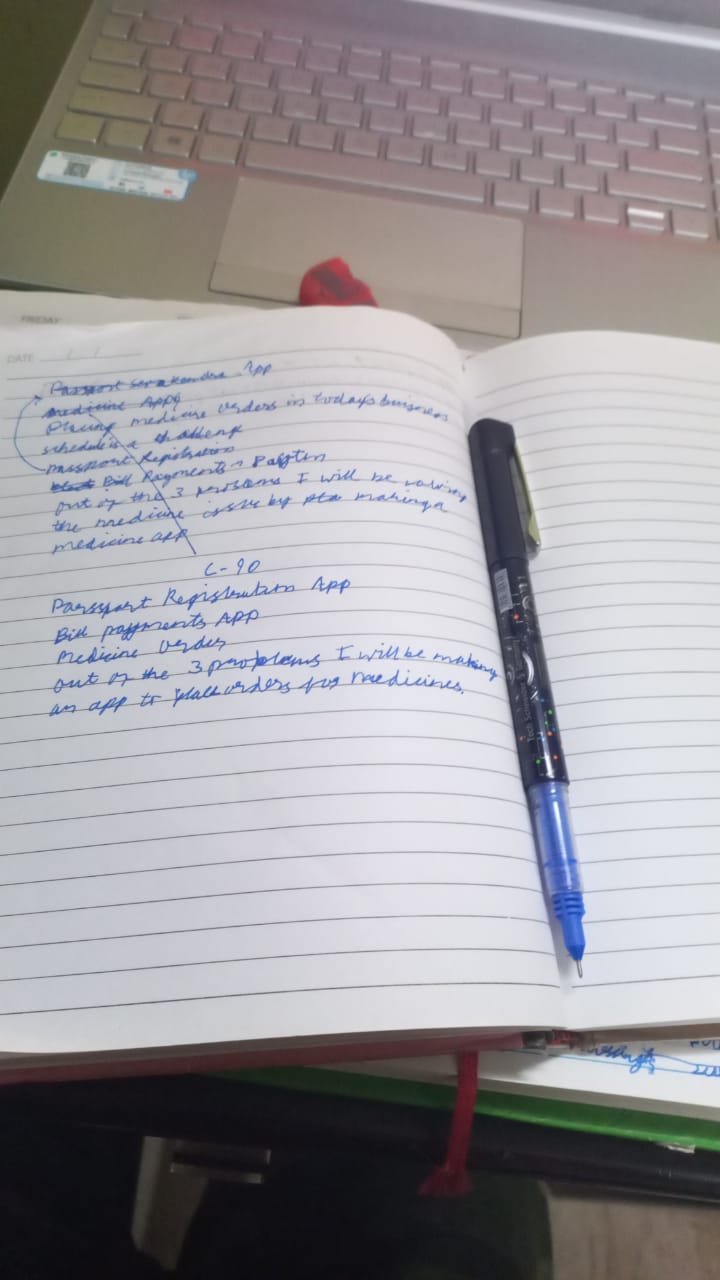 FRIDAY
DATE
App
medicine App
Placing medicine orders in todays business
schedule is a challenge
passport Registration
Bill Payments
out of the 3 problems I will be
the medicine issue by making a
medicine app
C-90
Passport Registration App
Bill payments App
Medicine order
out of the 3 problems I will be making
an app to place orders for medicines.